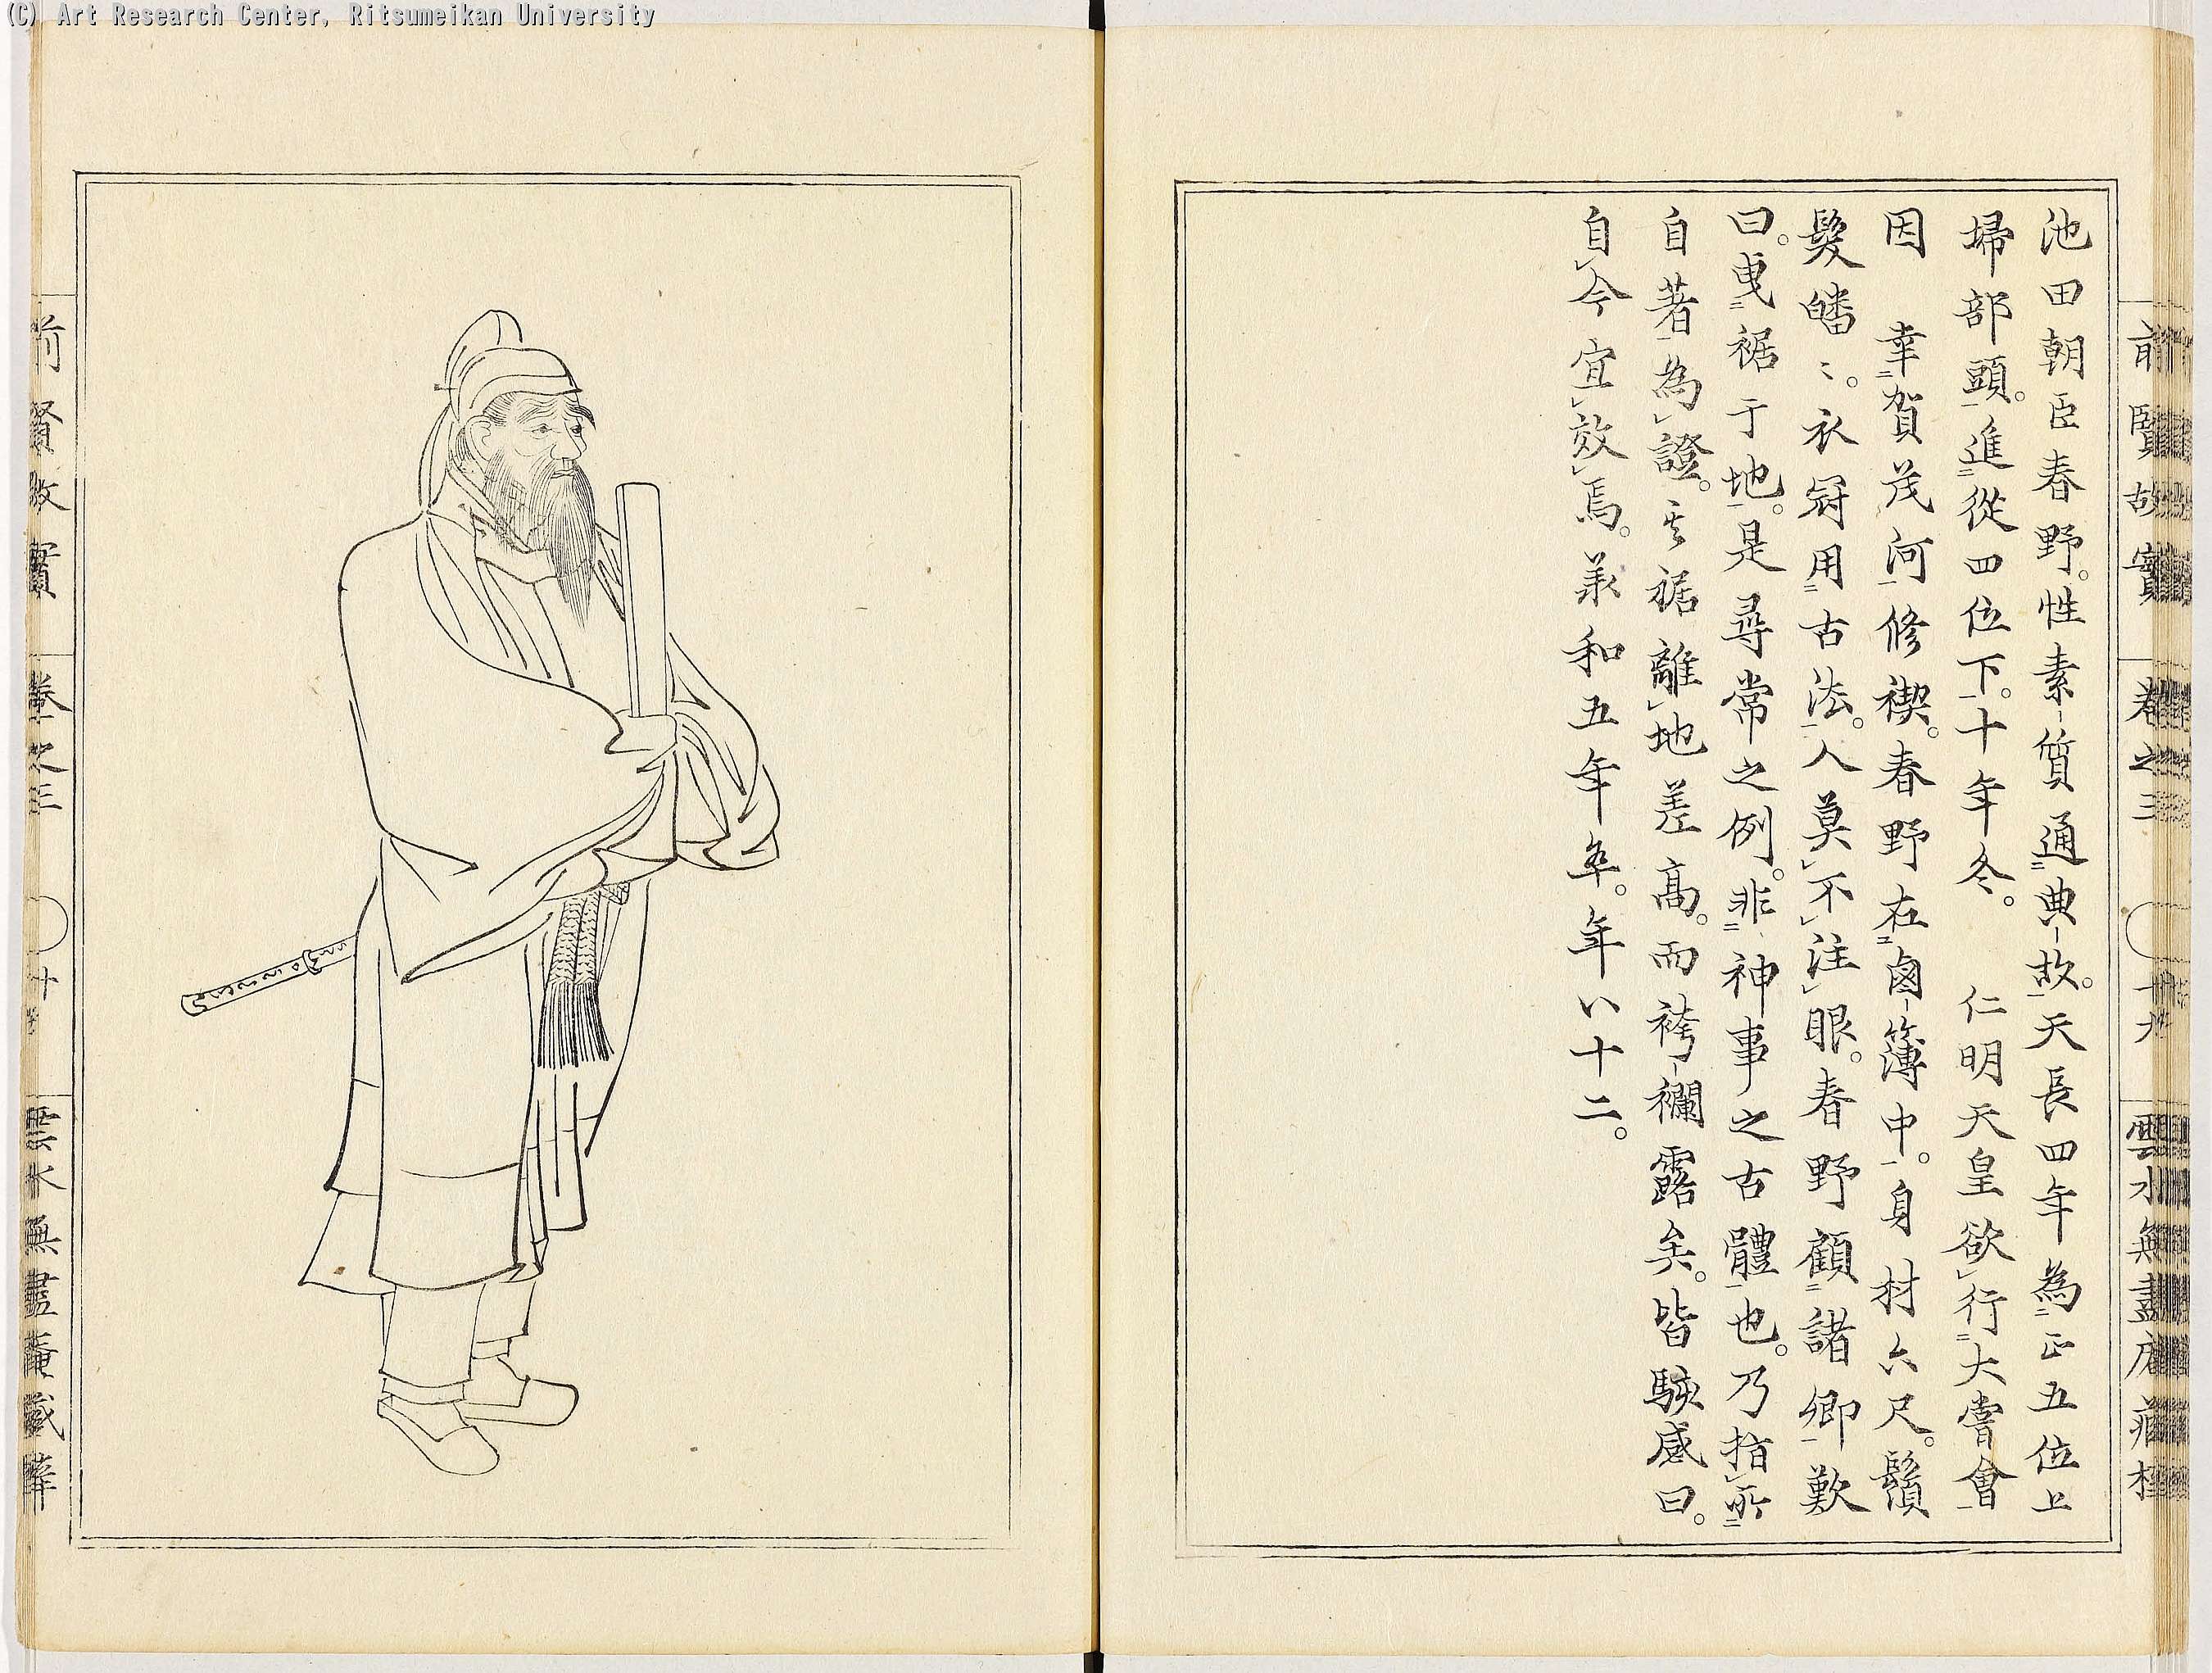 (C) Art Research Center, Ritsumeikan University
前賢故實 卷之三 十九 雲水無盡庵藏
池田朝臣春野。性素質通典故。天長四年為正五位上
掃部頭。進從四位下。十年冬。 仁明天皇欲行大嘗會
因 幸賀茂河修禊。春野在鹵簿中。身材六尺。鬚
髮皤〻。衣冠用古法。人莫不注眼。春野顧諸卿歎
曰。曳裾于地。是尋常之例。非神事之古體也。乃指所
自著為證。其裾離地差高。而袴襴露矣。皆駭感曰。
自今宜效焉。承和五年卒。年八十二。
前賢故實 卷之三 十 雲水無盡庵藏